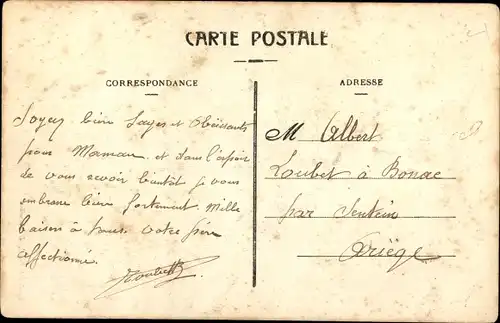 CARTE POSTALE
CORRESPONDANCE
Soyez bien Sages et Obéissants
pour Maman et dans l'espoir
de vous revoir bientôt je vous
embrasse bien fortement. Mille
baisers à tous. Votre père
affectionné.
Loubet
ADRESSE
M Albert
Loubet à Bonac
par Sentein
Ariège